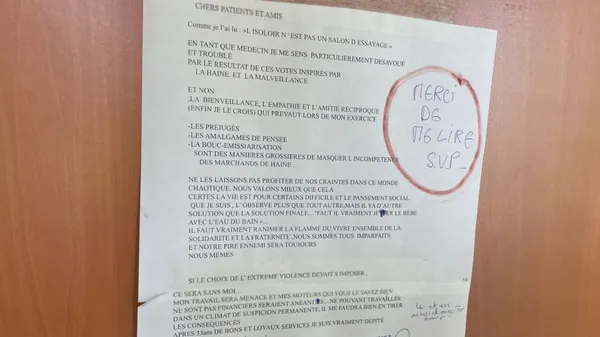 CHERS PATIENTS ET AMIS
Comme je l'ai lu : «L ISOLOIR N 'EST PAS UN SALON D ESSAYAGE »
EN TANT QUE MEDECIN JE ME SENS PARTICULIEREMENT DESAVOUE
ET TROUBLÉ
PAR LE RESULTAT DE CES VOTES INSPIRÉS PAR :
LA HAINE. ET LA MALVEILLANCE
ET NON
,LA BIENVEILLANCE, L'EMPATHIE ET L'AMITIE RECIPROQUE
(ENFIN JE LE CROIS) QUI PREVAUT LORS DE MON EXERCICE
-LES PREJUGÉS
-LES AMALGAMES DE PENSEE
-LA BOUC-EMISSIARISATION
SONT DES MANIERES GROSSIERES DE MASQUER L INCOMPETENCE
DES MARCHANDS DE HAINE .
MERCI
DE
ME LIRE
SVP_
NE LES LAISSONS PAS PROFITER DE NOS CRAINTES DANS CE MONDE
CHAOTIQUE, NOUS VALONS MIEUX QUE CELA
CERTES LA VIE EST POUR CERTAINS DIFFICILE ET LE PANSEMENT SOCIAL
QUE JE SUIS , L' OBSERVE PLUS QUE TOUT AUTRE,MAIS IL YA D'AUTRE
SOLUTION QUE LA SOLUTION FINALE... "FAUT IL VRAIMENT JETER LE BÉBÉ
AVEC L'EAU DU BAIN »...
IL FAUT VRAIMENT RANIMER LA FLAMME DU VIVRE ENSEMBLE DE LA
SOLIDARITE ET LA FRATERNITE ,NOUS SOMMES TOUS IMPARFAITS
ET NOTRE PIRE ENNEMI SERA TOUJOURS
NOUS MEMES
SI LE CHOIX DE L' EXTREME VIOLENCE DEVAIT S IMPOSER...
CE SERA SANS MOI....
MON TRAVAIL SERA MENACE ET MES MOTEURS QUI VOUS LE SAVEZ BIEN
NE SONT PAS FINANCIERS SERAIENT ANEANTIES...NE POUVANT TRAVAILLER
DANS UN CLIMAT DE SUSPICION PERMANENTE, IL ME FAUDRA BIEN EN TIRER
LES CONSEQUENCES
APRES 33ans DE BONS ET LOYAUX SERVICES JE SUIS VRAIMENT DÉPITÉ
et en